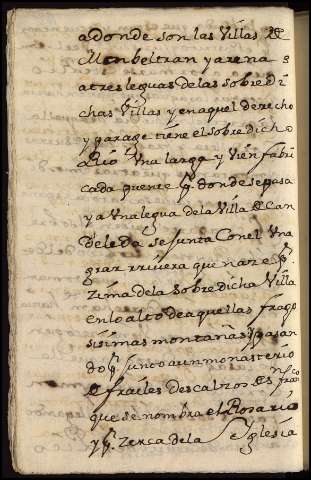 adonde son las Villas de
Monbeltran y arena s
a tres leguas de las sobre di
chas Villas y en aquel derecho
y parage tiene el sobre dicho
Rio Una larga y Vien fabri
cada puente p. donde se pasa
ya Una legua de la Villa de Can
deleda se junta Con el Una
gran rrivera que naze en p.
Zima de la sobre dicha Villa
en lo alto de aquellas frago
sisimas montañas y pasan
do p. junto a un monasterio
de frailes Descalzos de Sn fran.co
que se nombra el Rosario
y p. Zerca de la Yglesia